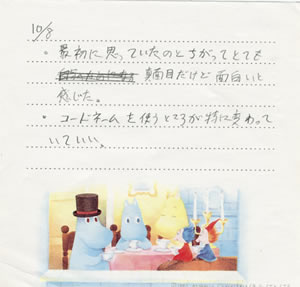 10/8
・最初に思っていたのとちがってとても
真面目だけど面白いと
感じた。
・コードネームを使うところが特に変わって
いていい。